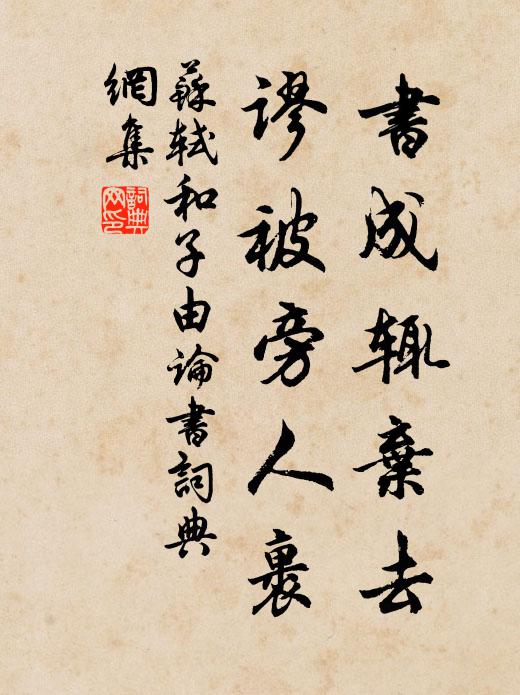 書成輒棄去
謬被旁人裹
蘇軾和子由論書詞典
網集
詞典網印